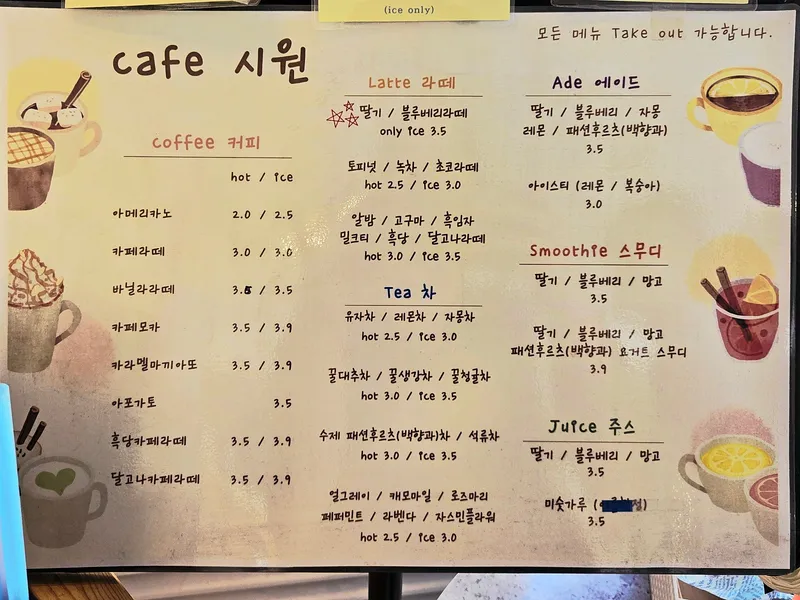 (ice only)
모든 메뉴 Take out 가능합니다.
cafe 시원
coffee 커피
hot / ice
아메리카노 2.0 / 2.5
카페라떼 3.0 / 3.0
바닐라라떼 3.5 / 3.5
카페모카 3.5 / 3.9
카라멜마끼아또 3.5 / 3.9
아포가토 3.5
흑당카페라떼 3.5 / 3.9
달고나카페라떼 3.5 / 3.9
Latte 라떼
딸기 / 블루베리라떼
only ice 3.5
토피넛 / 녹차 / 초코라떼
hot 2.5 / ice 3.0
알밤 / 고구마 / 흑임자
밀크티 / 흑당 / 달고나라떼
hot 3.0 / ice 3.5
Tea 차
유자차 / 레몬차 / 자몽차
hot 2.5 / ice 3.0
꿀대추차 / 꿀생강차 / 꿀청귤차
hot 3.0 / ice 3.5
수제 패션후르츠(백향과)차 / 석류차
hot 3.0 / ice 3.5
얼그레이 / 캐모마일 / 로즈마리
페퍼민트 / 라벤다 / 자스민플라워
hot 2.5 / ice 3.0
Ade 에이드
딸기 / 블루베리 / 자몽
레몬 / 패션후르츠(백향과)
3.5
아이스티 (레몬 / 복숭아)
3.0
Smoothie 스무디
딸기 / 블루베리 / 망고
3.5
딸기 / 블루베리 / 망고
패션후르츠(백향과) 요거트 스무디
3.9
Juice 주스
딸기 / 블루베리 / 망고
3.5
미숫가루
3.5